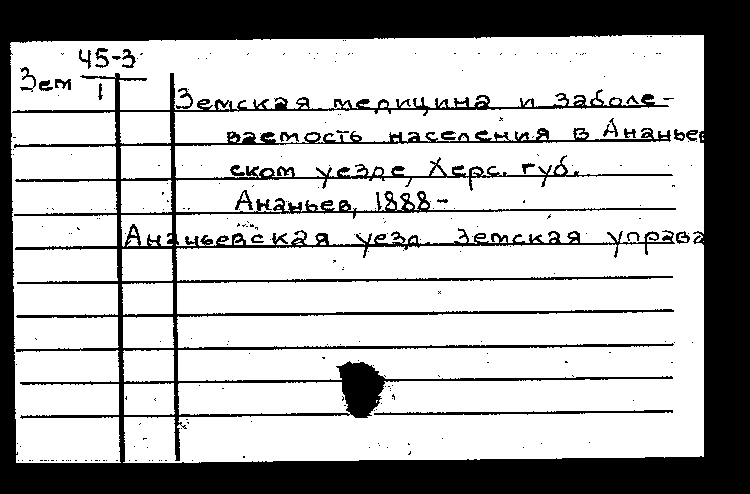 45-3
Зем 1
Земская медицина и заболе-
ваемость населения в Ананьев
ском уезде, Херс. губ.
Ананьев, 1888-
Ананьевская уезд. земская управа